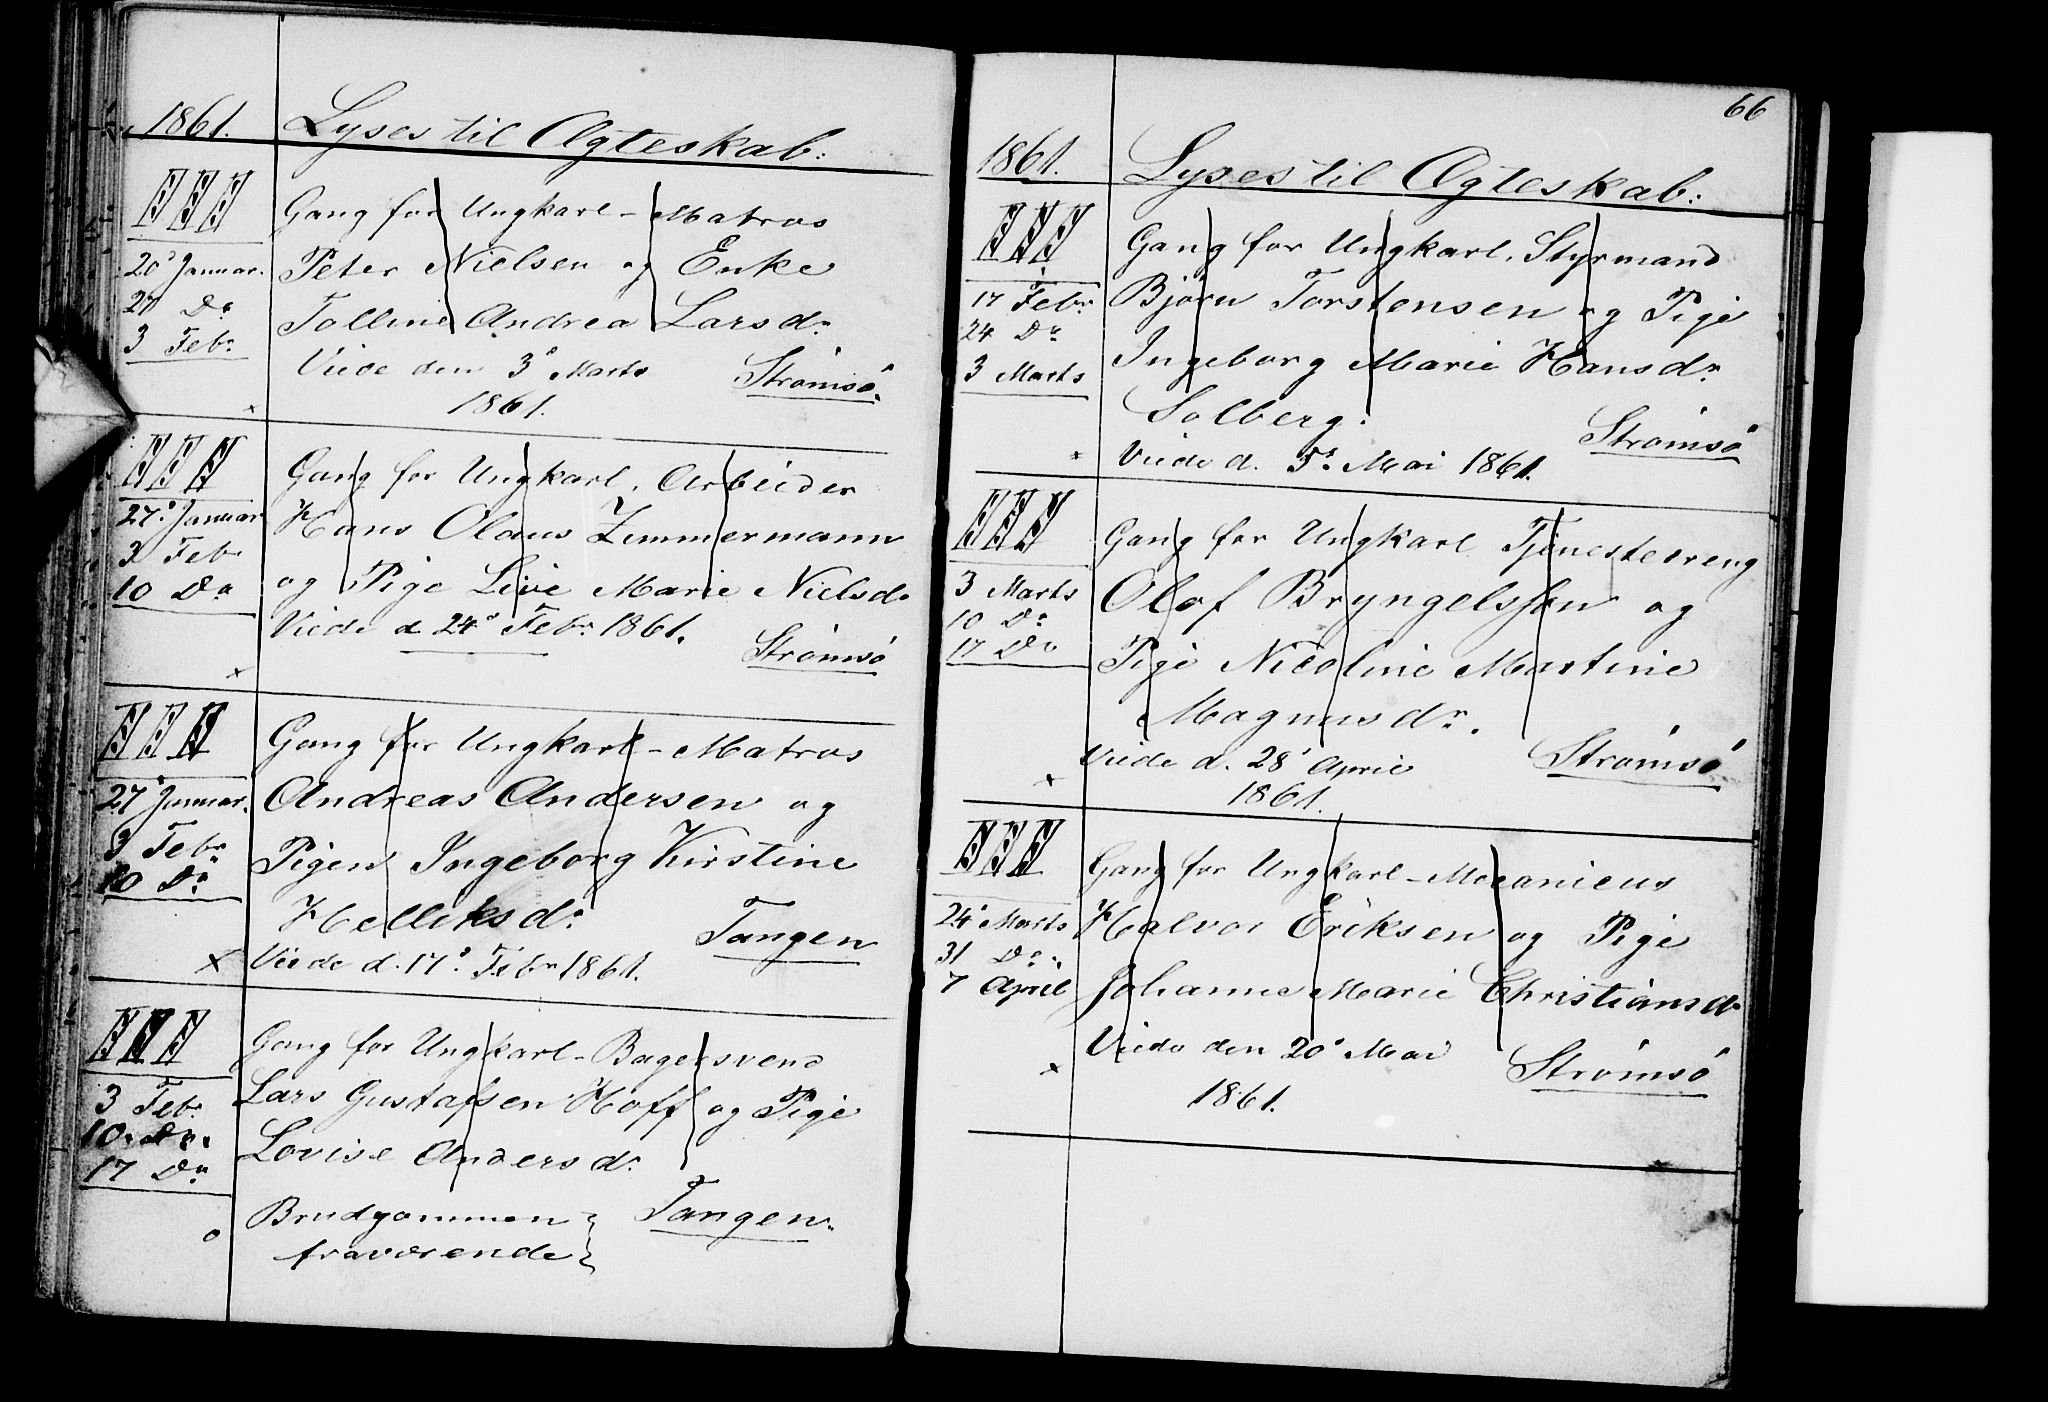 1861. Lyses til Ægteskab:
III Gang for Ungkarl-Matros
20 Januar. Peter Nielsen og Enke
27 Do Tolline Andrea Larsdr
3 Febr Viede den 3 Marts Strømsø.
x 1861.
III Gang for Ungkarl. Arbeider
27 Januar Hans Olaus Zimmermann
3 Feb
10 Do og Pige Live Marie Nielsd.
Viede d 24 Febr 1861.
x Strømsø
III Gang for Ungkarl-Matros
27 Januar. Andreas Andersen og
3 Febr Pigen Ingeborg Kirstine
10 Do
Helliksdr Tangen
x Viede d. 17 Febr 1861.
III Gang for Ungkarl-Bagersvend
3 Febr Lars Gustafsen Hoff og Pige
10. Do. Lovise Andersdr
17 Do
o Brudgommen } Tangen.
fraværende }
66
1861. Lyses til Ægteskab:
III Gang for Ungkarl. Styrmand
17 Febr Bjørn Torstensen og Pige
24 Do
3 Marts Ingeborg Marie Hansdr
Solberg. Strømsø
x Viede d. 5 Mai 1861.
III Gang for Ungkarl Tjenestedreng
3 Marts Olof Bryngelssen og
10 Do
17 Do Pige Nicoline Martine
Magnusdr.
Viede d. 28 April Strømsø
x 1861.
III Gang for Ungkarl-Mecanicus
24 Marts Halvor Eriksen og Pige
31 Do.
7 April Johanne Marie Christiansdr
Viede den 20 Mai Strømsø
x 1861.